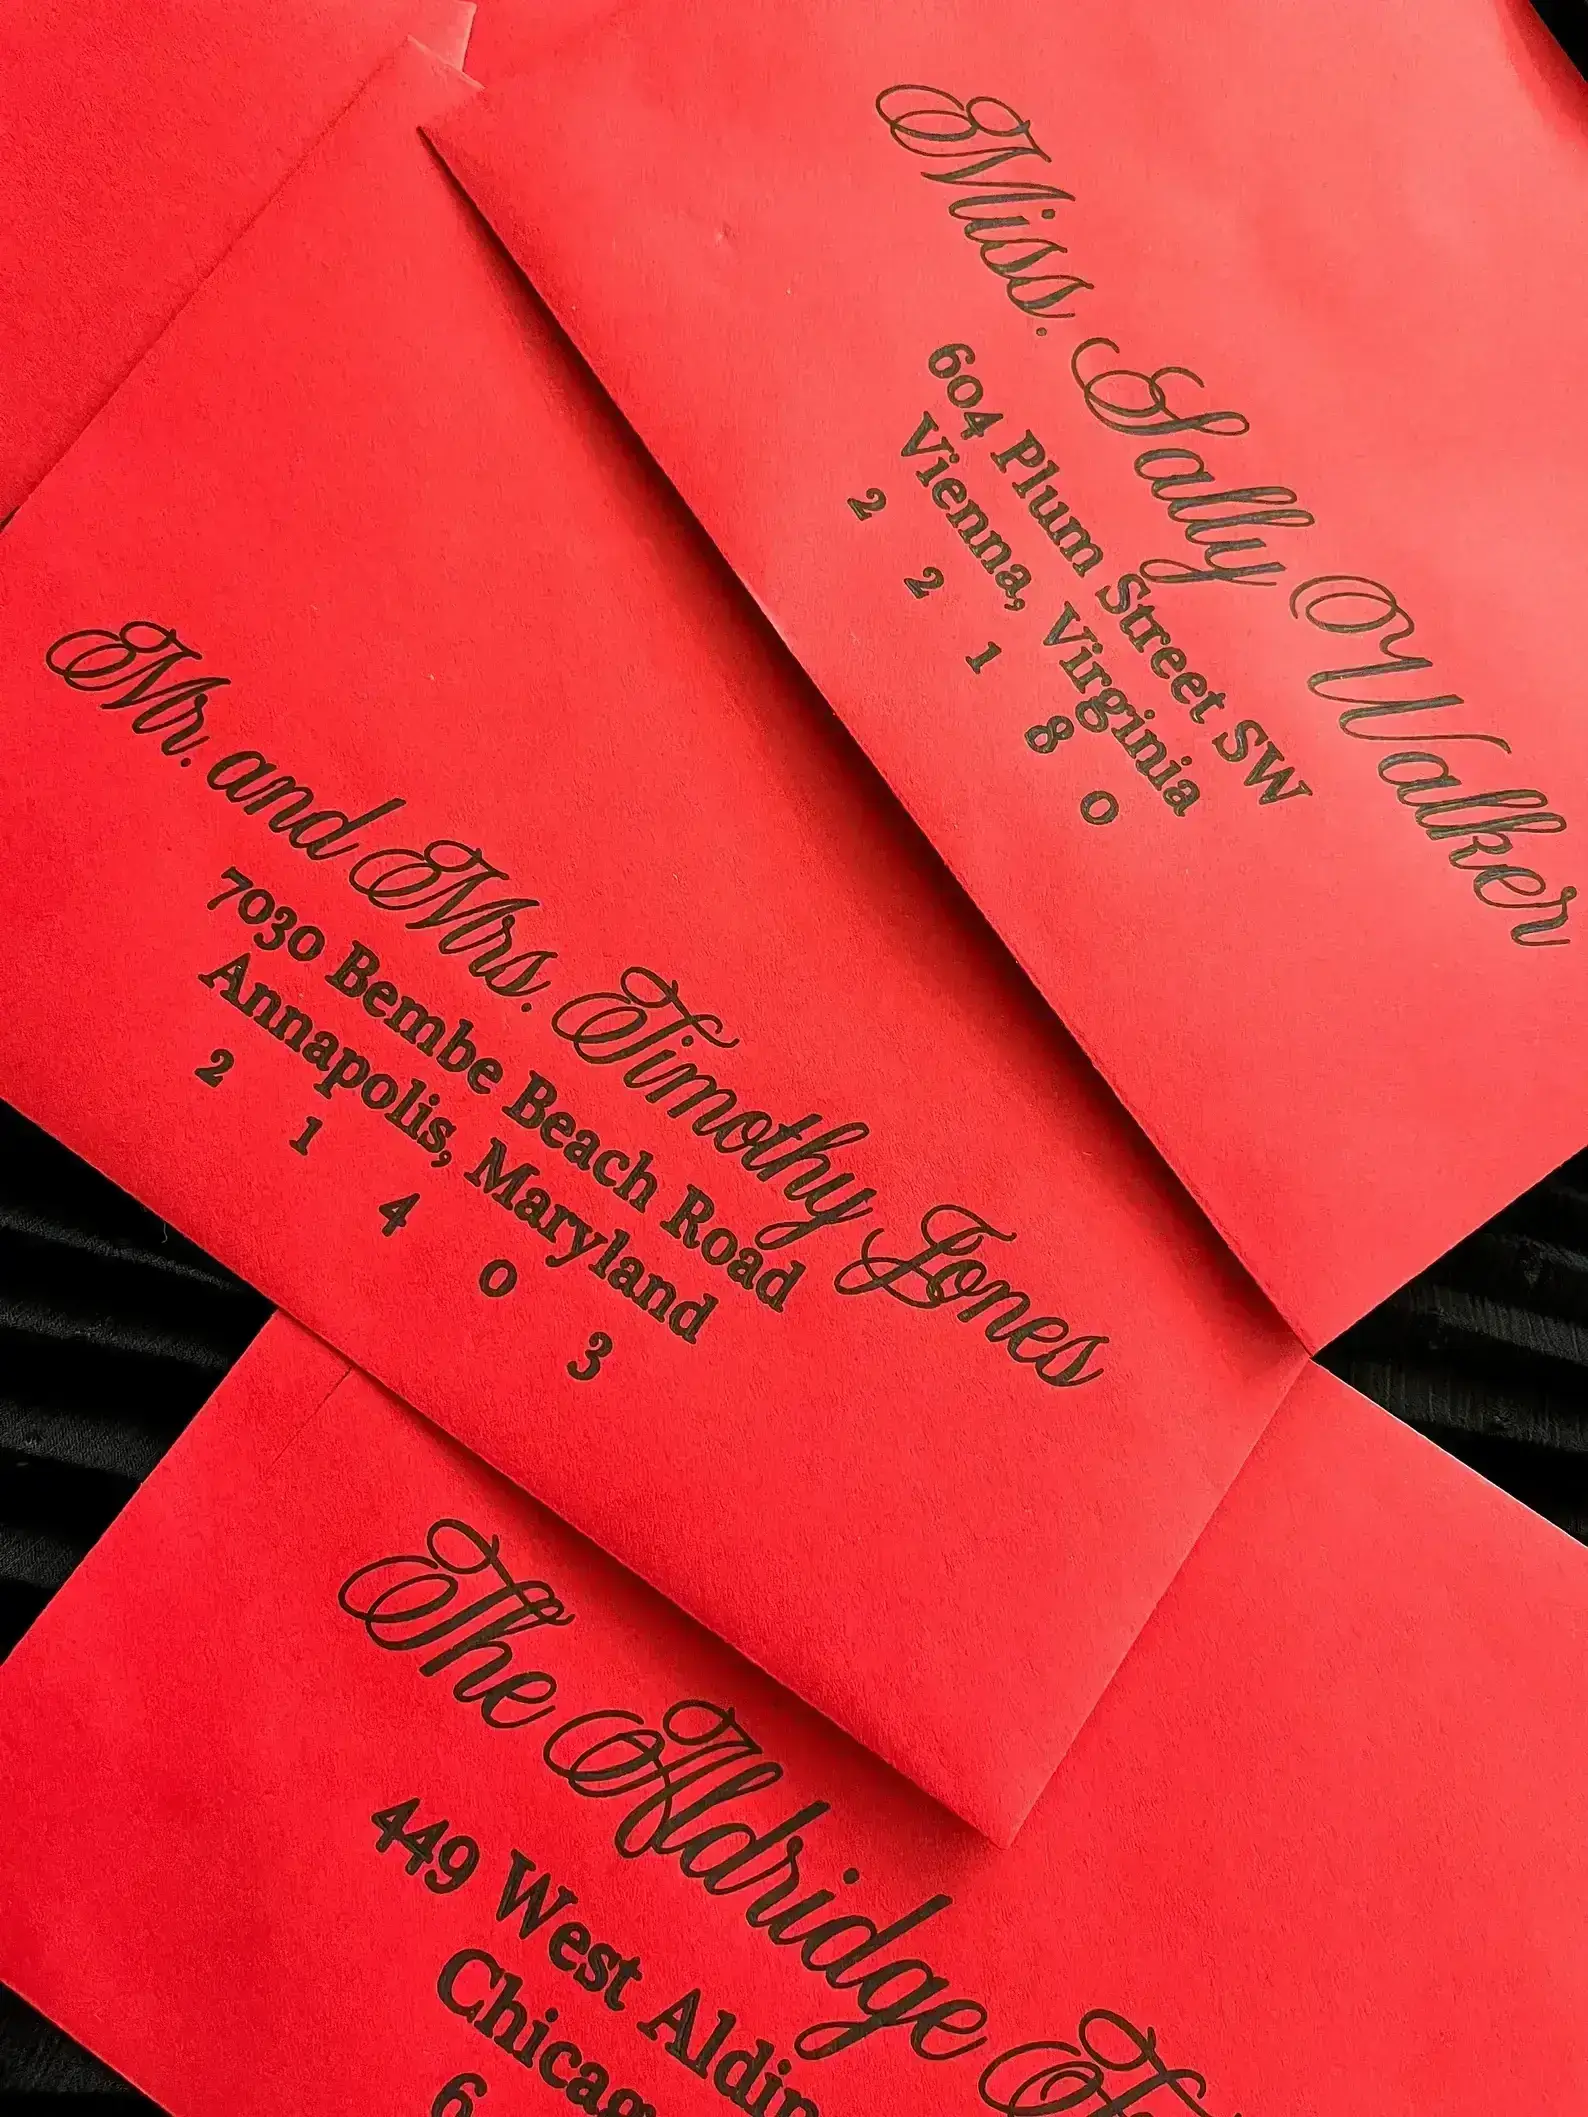 Miss. Sally Walker
604 Plum Street SW
Vienna, Virginia
2 2 1 8 0
Mr. and Mrs. Timothy Jones
7030 Bembe Beach Road
Annapolis, Maryland
2 1 4 0 3
The Aldridge
449 West
6